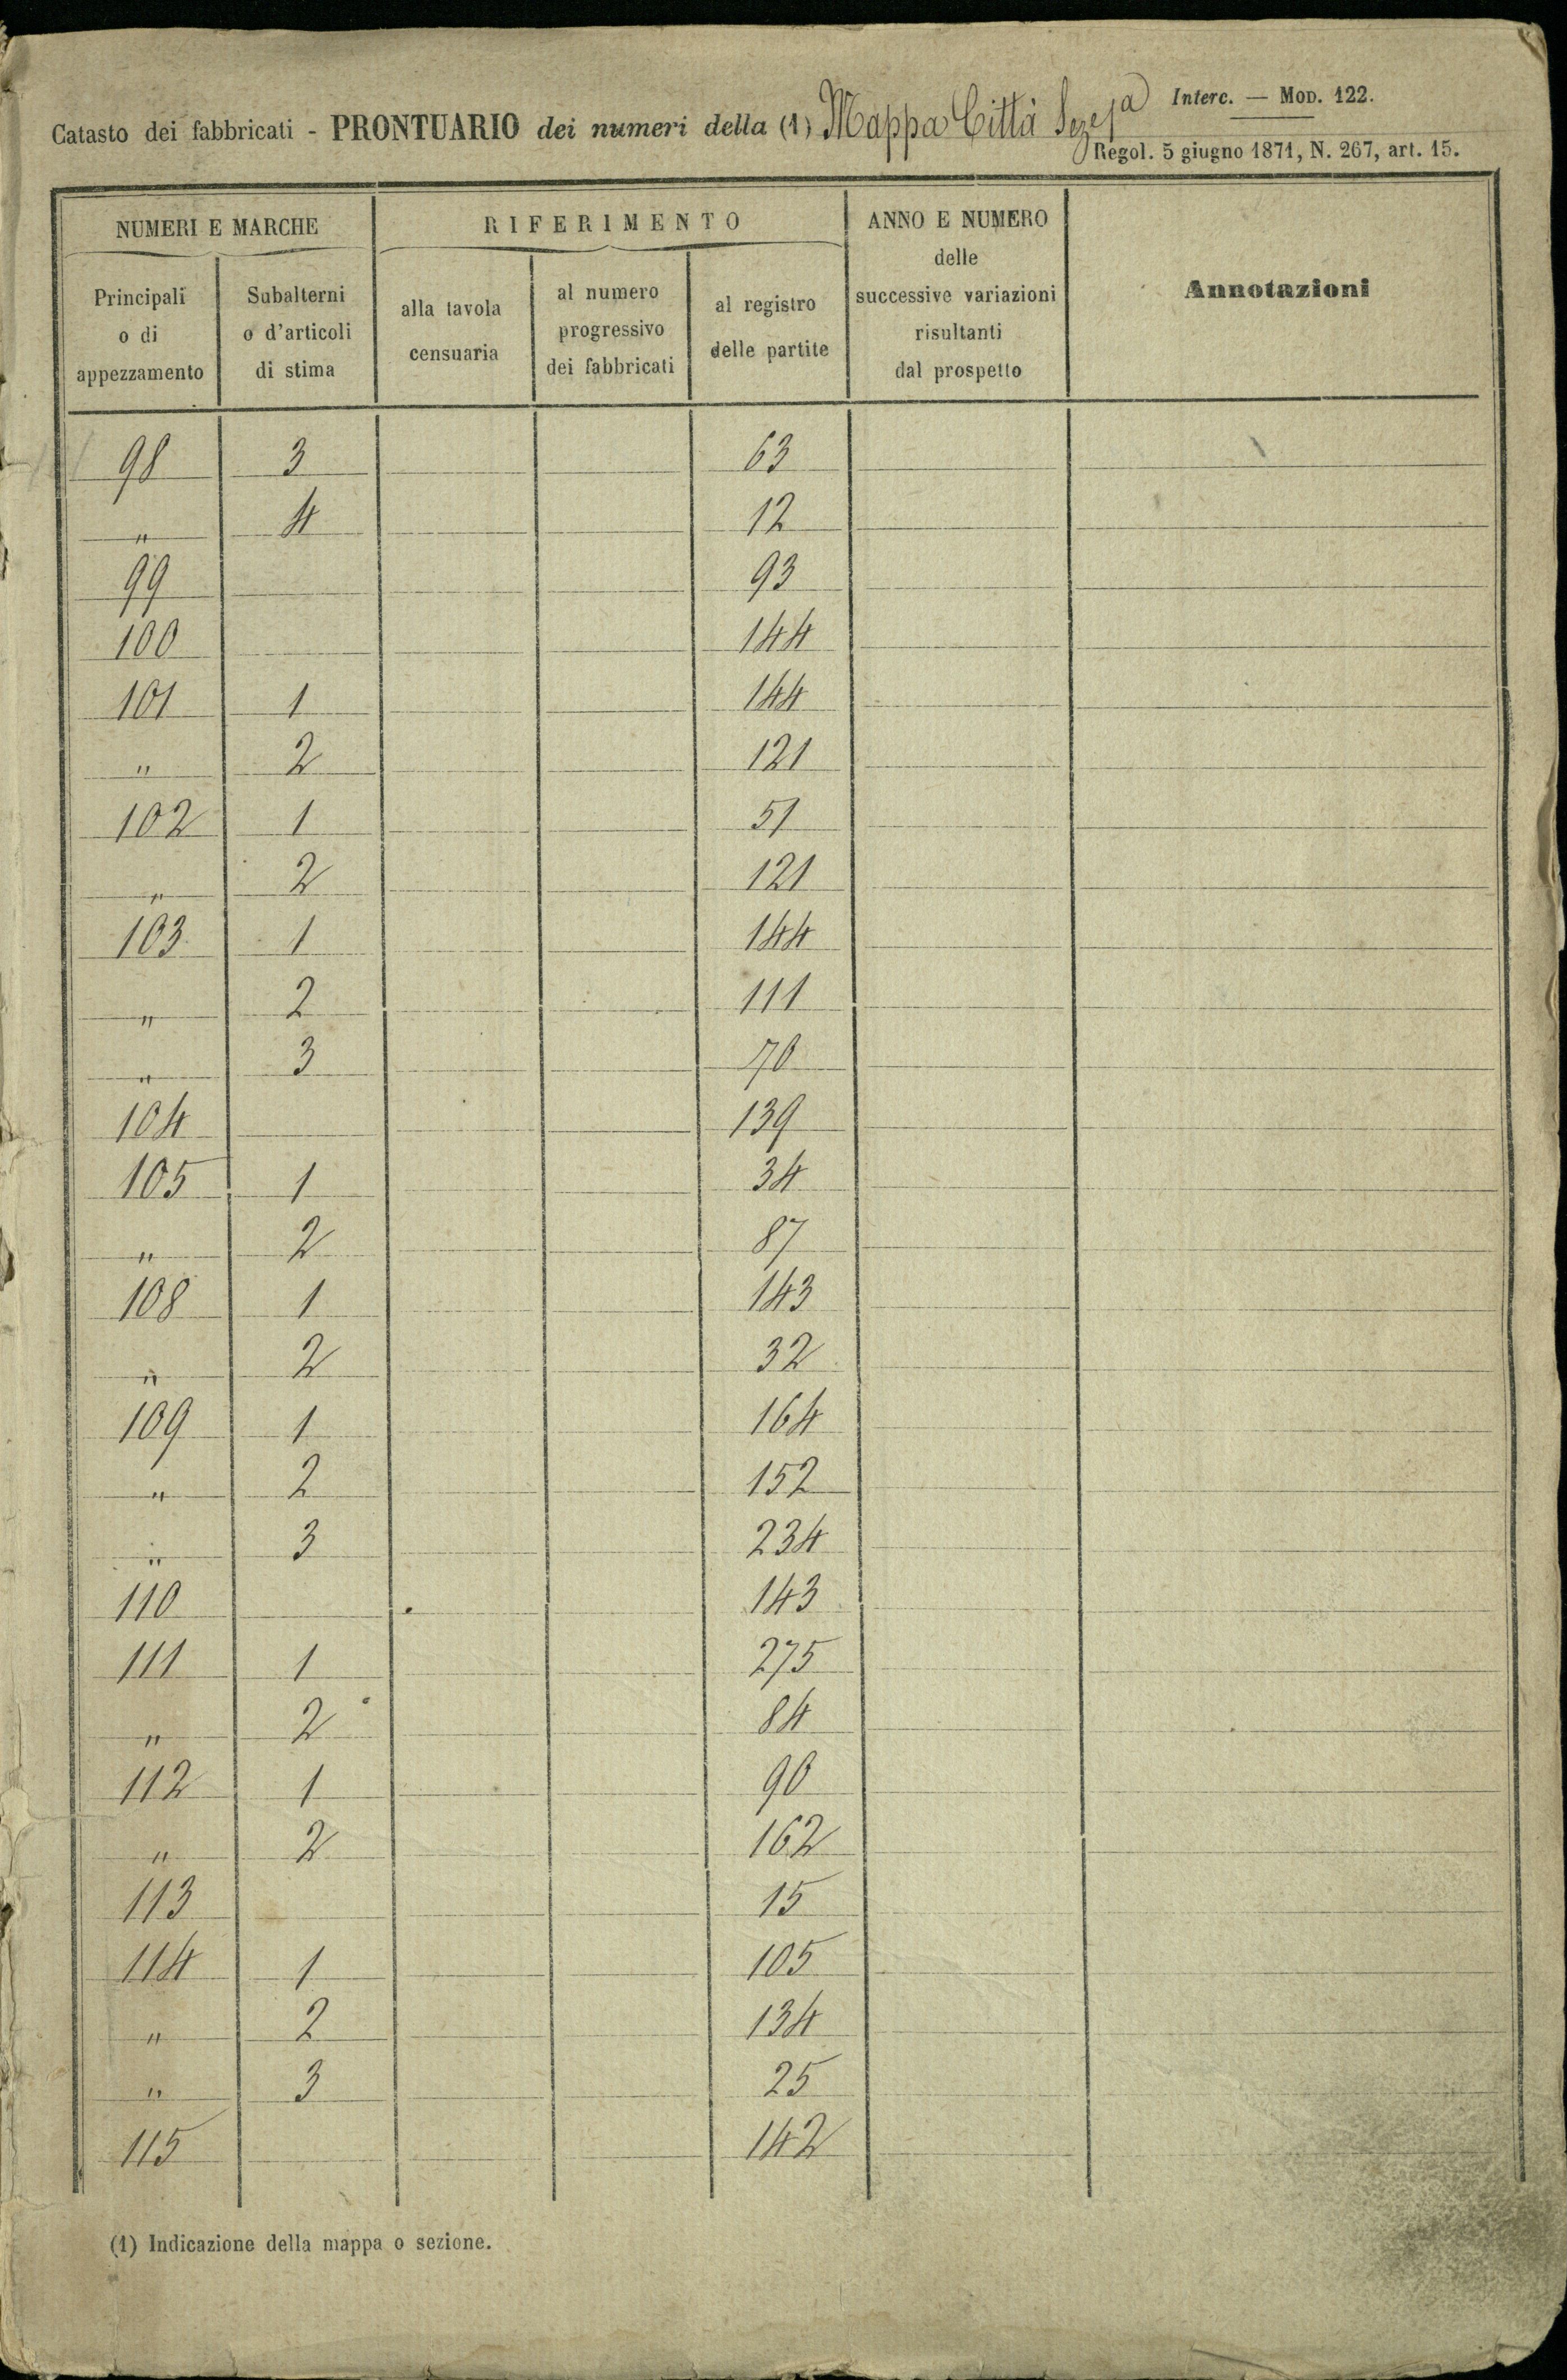 Interc. — Mod. 122.
Catasto dei fabbricati - PRONTUARIO dei numeri della (1) Mappa Città Seze 1a
Regol. 5 giugno 1871, N. 267, art. 15.
NUMERI E MARCHE RIFERIMENTO ANNO E NUMERO delle successive variazioni risultanti dal prospetto Annotazioni
Principali o di appezzamento Subalterni o d'articoli di stima alla tavola censuaria al numero progressivo dei fabbricati al registro delle partite
98 3 63
" 4 12
99 93
100 144
101 1 144
" 2 121
102 1 51
" 2 121
103 1 144
" 2 111
" 3 70
104 139
105 1 34
" 2 87
108 1 143
" 2 32
109 1 164
" 2 152
" 3 234
110 143
111 1 275
" 2 84
112 1 90
" 2 162
113 15
114 1 105
" 2 134
" 3 25
115 142
(1) Indicazione della mappa o sezione.